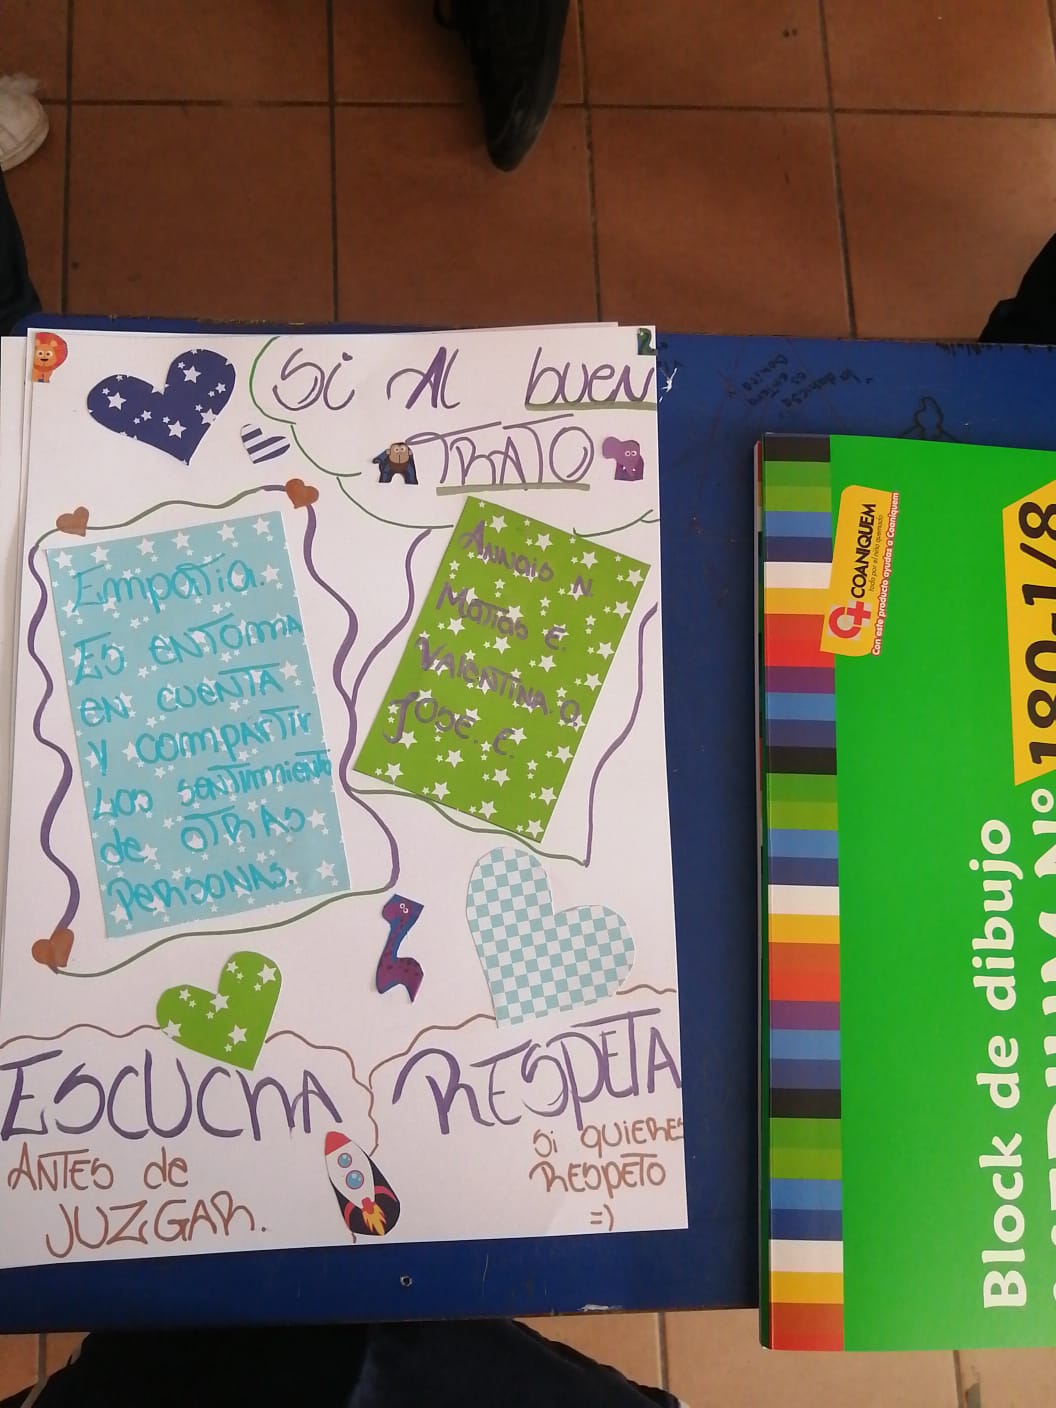 Si Al buen
TRATO
Empatia.
Es entoma
en cuenta
y compartir
Los sentimiento
de otras
personas.
Annais N.
Matias E.
Valentina. O.
Jose. C.
ESCUCHA
ANTES de
JUZGAR.
RESPETA
Si QUIERES
RESPETO
=)
COANIQUEM
todo por el niño quemado
Con este producto ayudas a Coaniquem
180-1/8
Block de dibujo
Nº